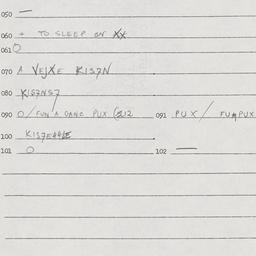 050 —
060 + TO SLEEP ON XX
061 O
070 A VEJXE KIS7N
080 KIS7NS7
090 O/FUN A DANC PUX 091 PUX/ FU PUX
100
101 O 102 —